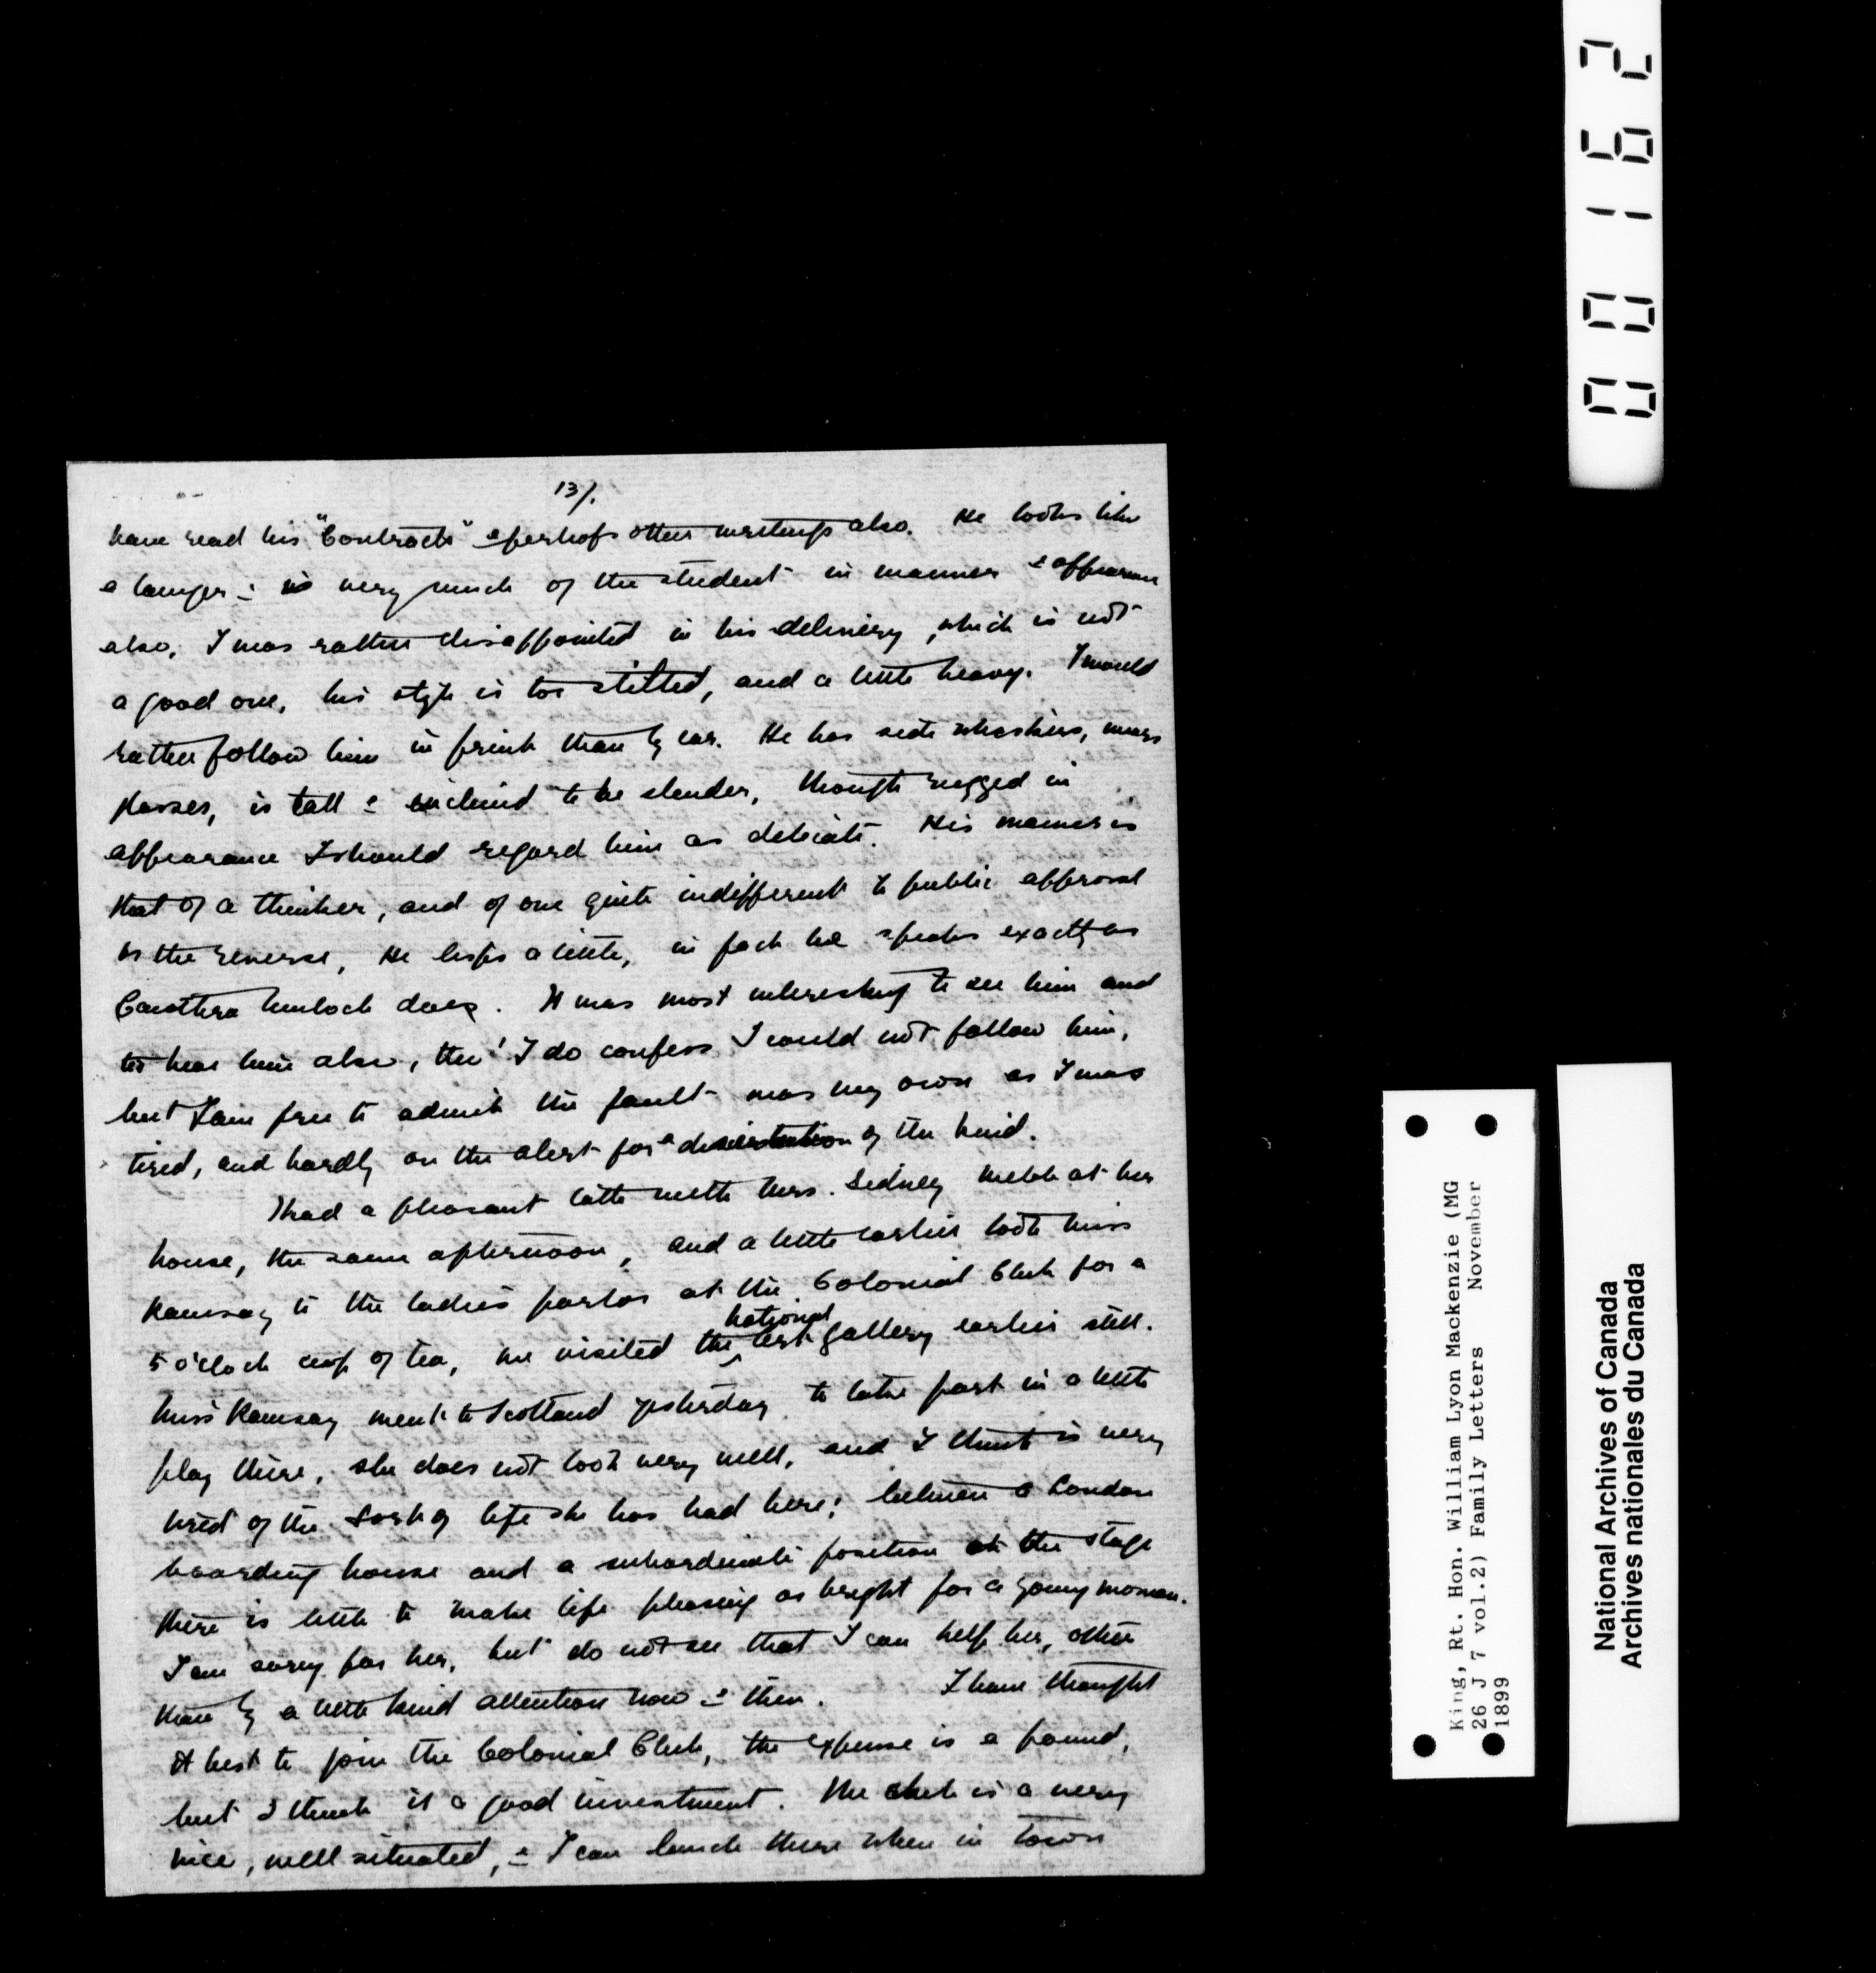 13/.
have read his "Contracts" & perhaps other writings also. He looks like
a lawyer & is very much of the student in manner & appearance
also, I was rather disappointed in his delivery, which is not
a good one, his style is too stilted, and a little heavy. I would
rather follow him in print than by ear. He has side whiskers, wears
glasses, is tall & inclined to be slender, though rugged in
appearance I should regard him as delicate. His manner is
that of a thinker, and of one quite indifferent to public approval
or the reverse, He lisps a little, in fact he speaks exactly as
does. It was most interesting to see him and
to hear him also, tho' I do confess I could not follow him,
but I am free to admit the fault was my own as I was
tired, and hardly on the alert for a dissertation of the kind.
I had a pleasant with Mrs. Sidney Webb at her
house, the same afternoon, and a little earlier took Miss
Ramsay to the ladies parlor at the Colonial Club for a
5 o'clock cup of tea, we visited the National art gallery earlier still.
Miss Ramsay went to Scotland yesterday to take part in a little
play there, she does not look very well, and I think is very
tired of the sort of life she has had here; between a London
boarding house and a subordinate position on the stage
there is little to make life pleasing or bright for a young woman.
I am sorry for her, but do not see that I can help her, other
than by a little kind attention now & then. I have thought
it best to join the Colonial Club, the expense is a pound,
but I think it a good investment. The club is a very
nice, well situated, & I can lunch there when in town
00162
King, Rt. Hon. William Lyon Mackenzie (MG
26 J 7 vol.2) Family Letters November
1899
National Archives of Canada
Archives nationales du Canada